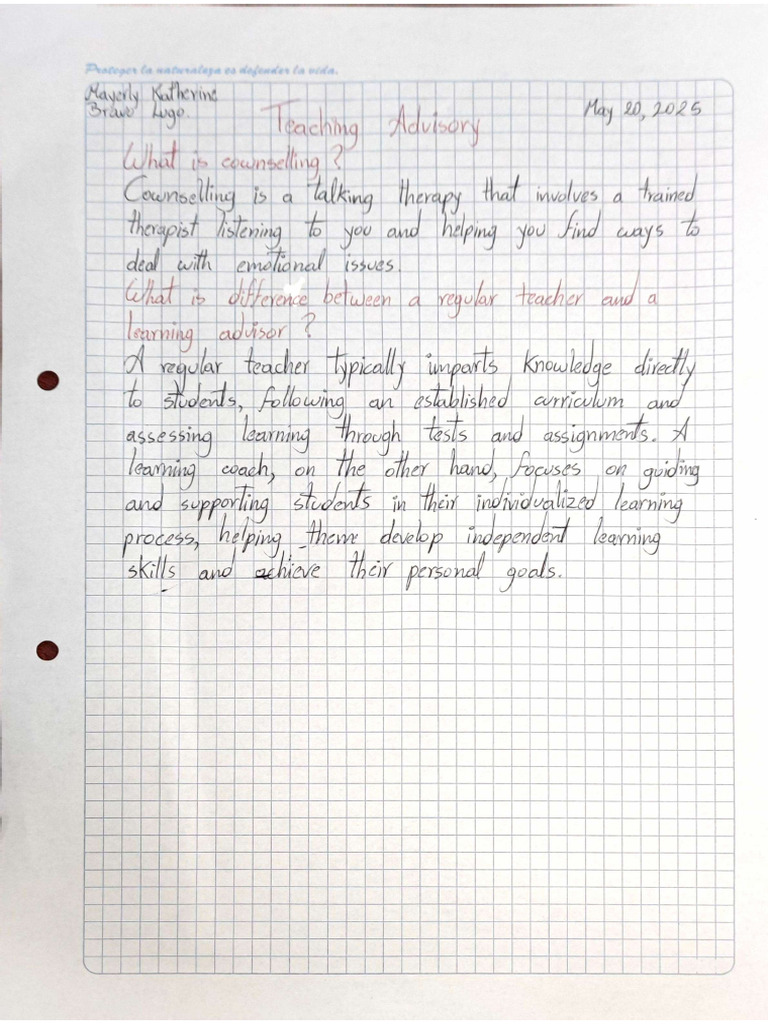 Proteger la naturaleza es defender la vida.
Mayerly Katherine
Bravo Lugo.
May 20, 2025
Teaching Advisory
What is counselling?
Counselling is a talking therapy that involves a trained
therapist listening to you and helping you find ways to
deal with emotional issues.
What is difference between a regular teacher and a
learning advisor?
A regular teacher typically imparts knowledge directly
to students, following an established curriculum and
assessing learning through tests and assignments. A
learning coach, on the other hand, focuses on guiding
and supporting students in their individualized learning
process, helping them develop independent learning
skills and achieve their personal goals.